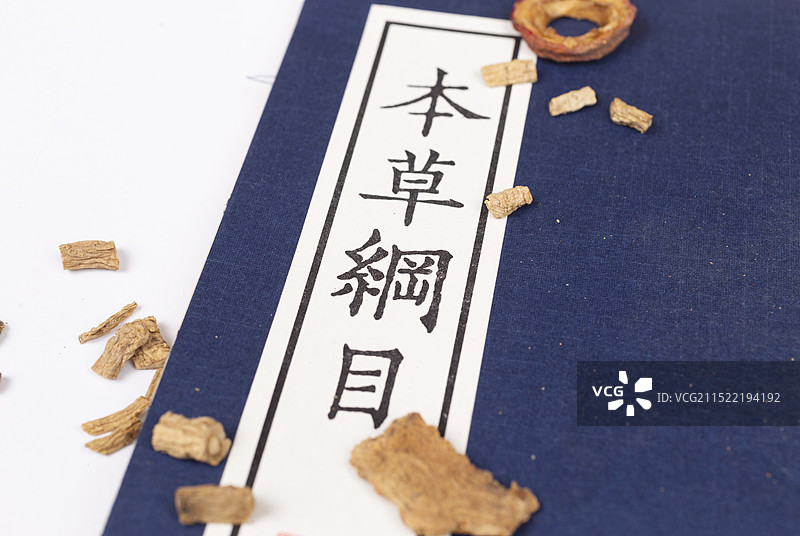 本草綱目
VCG ID: VCG211522194192